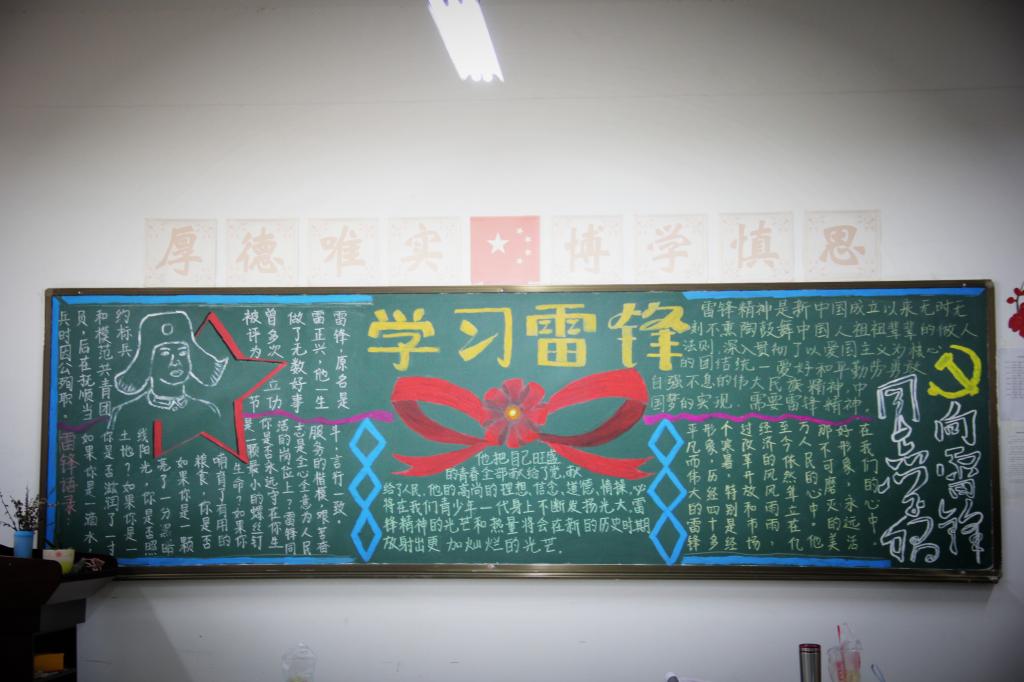 厚德唯实 博学慎思
学习雷锋
雷锋，原名是
雷正兴，他一生
做了无数好事
曾多次立功
被评为节
约标兵
和模范共青团
员，后在抚顺当
兵时因公殉职。
雷锋语录：
如果你是一滴水
你是否滋润了一寸
土地？如果你是一
线阳光，你是否照
亮了一分黑暗
如果你是一颗
粮食，你是否
哺育了有用的
生命？如果你
是一颗最小的螺丝钉
你是否永远守在你生
活的岗位上？雷锋同
志是全心全意为人民
服务的楷模，艰苦奋
斗，言行一致。
他把自己旺盛
的青春全部献给了党，献
给了人民，他的高尚的理想、信念、道德、情操，必
将在我们青少年一代身上不断发扬光大，雷
锋精神的光芒和热量将会在新的历史时期
放射出更加灿烂的光芒。
雷锋精神是新中国成立以来无时无
刻不熏陶鼓舞中国人祖祖辈辈的做人
法则，深入贯彻了以爱国主义为核心
的团结统一爱好和平勤劳勇敢
自强不息的伟大民族精神 中
国梦的实现，需要雷锋精神
在我们的心中，
好形象，永远活
那不可磨灭的美
万人民的心中。他
至今依然耸立在亿
经济的风风雨雨，
过改革开放和市场
个寒暑，特别是经
形象，历经四十多
平凡而伟大的雷锋
向雷锋
同志学习